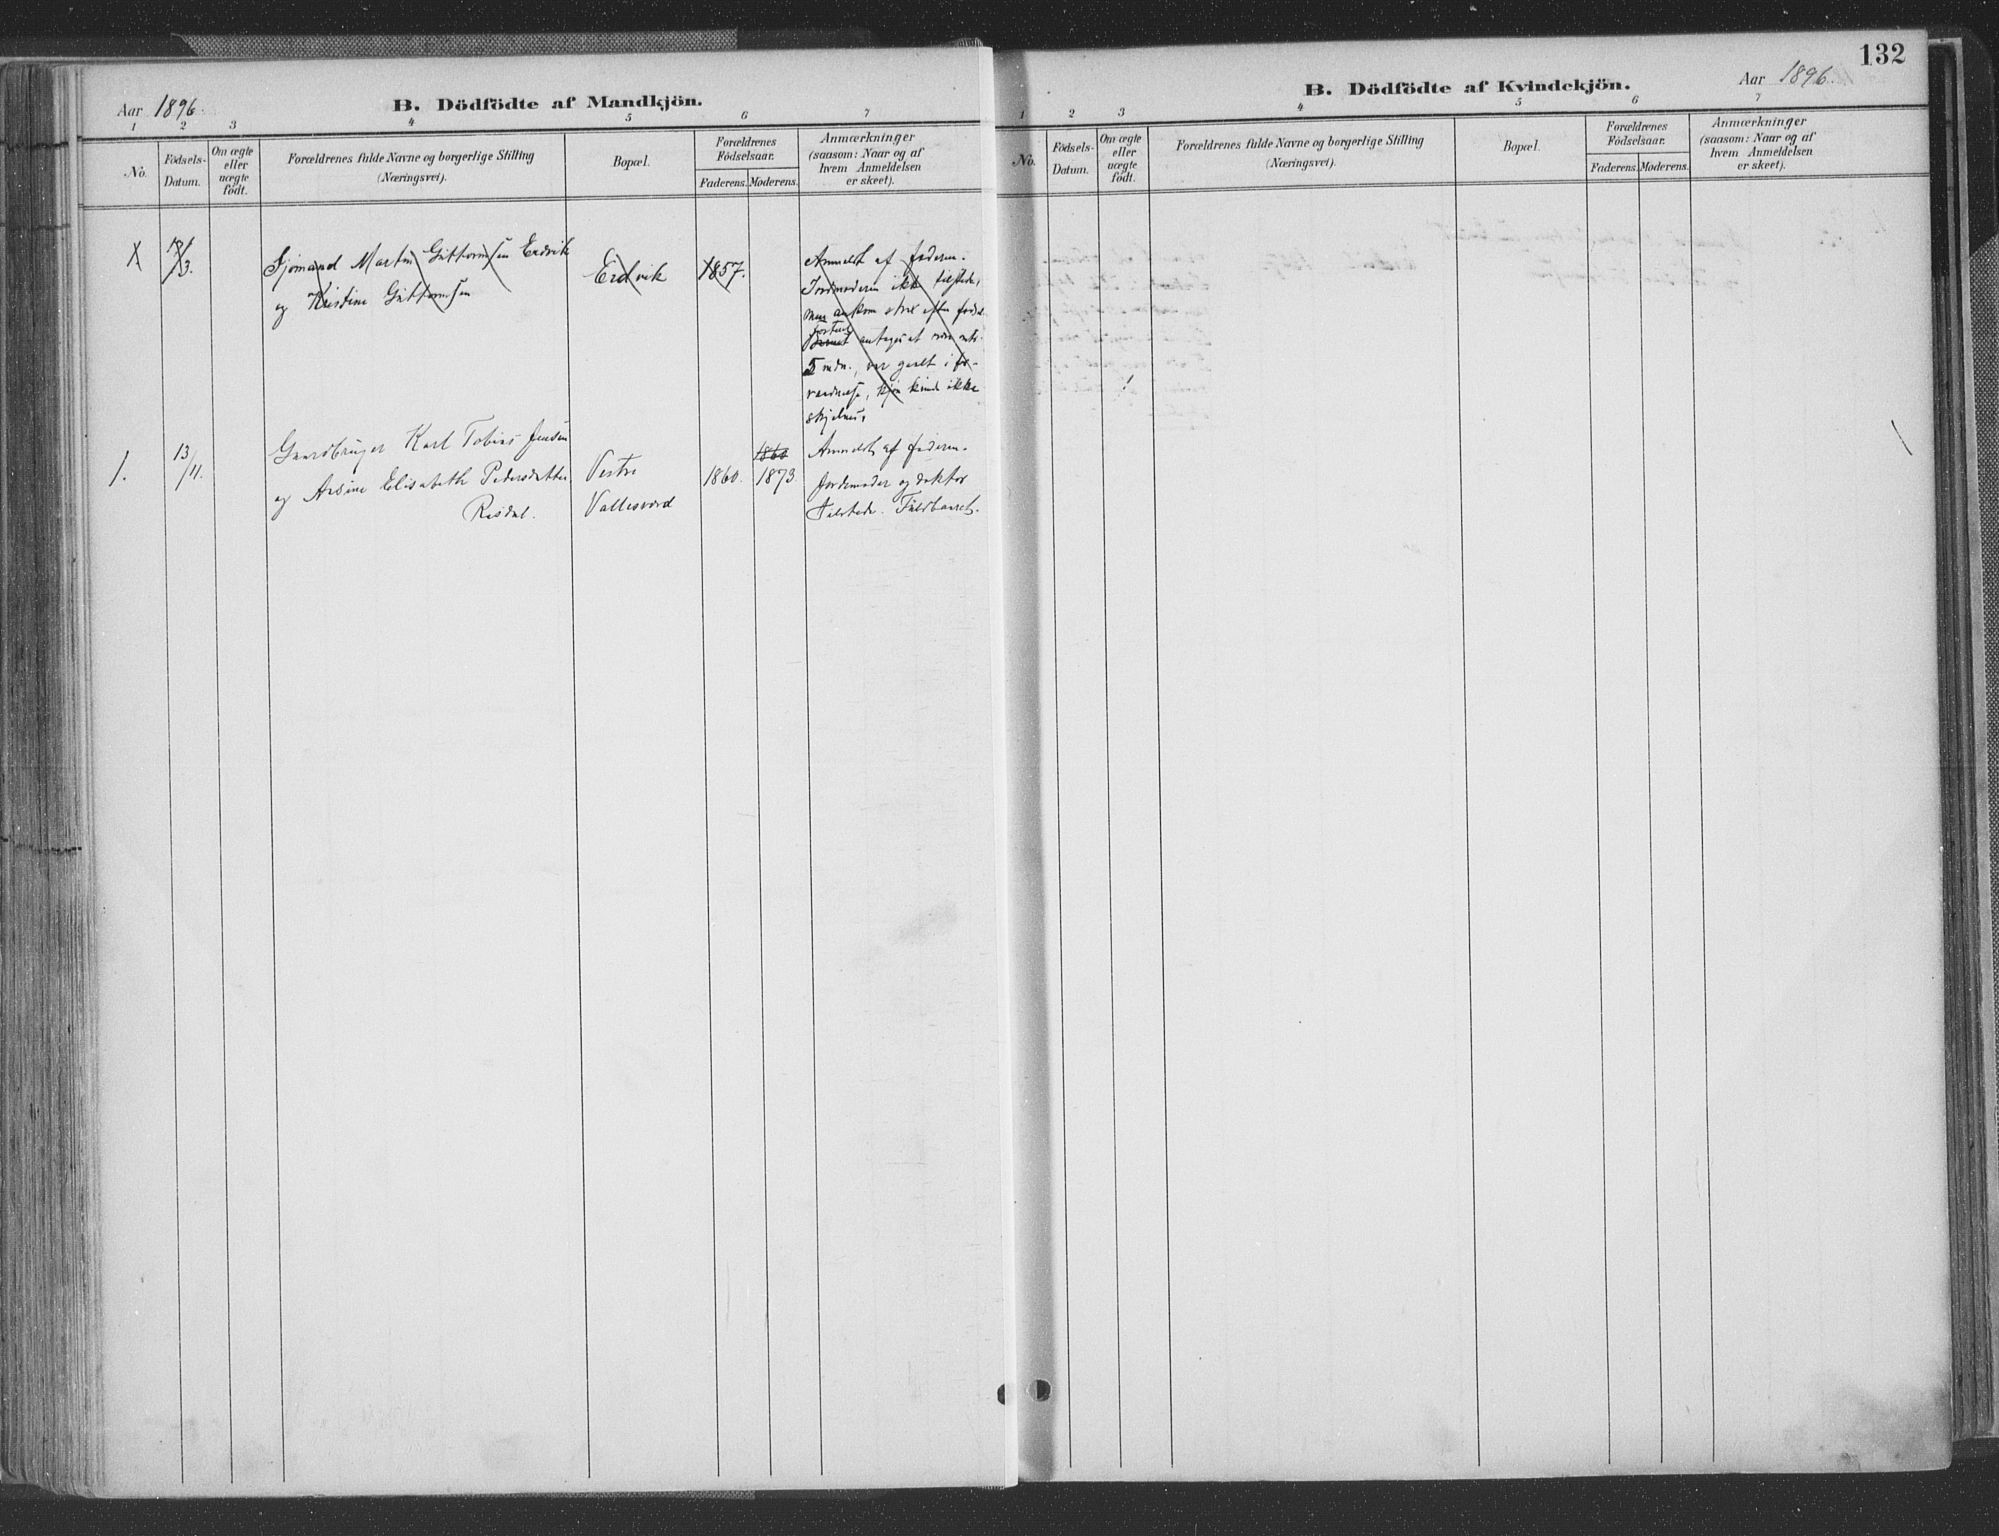 Aar 1896.
B. Dödfödte af Mandkjön.
1 2 3 4 5 6 7
No.
Födsels-
Datum.
Om ægte
eller
uægte
födt.
Forældrenes fulde Navne og borgerlige Stilling
(Næringsvei).
Bopæl.
Forældrenes
Födselsaar.
Faderens. Moderens.
Anmærkninger
(saasom: Naar og af
hvem Anmeldelsen
er skeet).
Sjømand Martin Guttormsen Eidvik
og Kristine Guttormsen
Eidvik
1857.
Anmeldt af faderen.
Jordmoderen ikke tilstede,
men ankom strax efter fødsel
Fosteret
Barnet antages at være
5 mdn., var gaaet i for-
raadnelse, kjøn kunde ikke
skjelnes.
1.
13/11.
Gaardbruger Karl Tobias Jensen
og Arsine Elisabeth Pedersdatter
Risdal.
Vestre
Vallesverd
1860.
1860
1873.
Anmeldt af faderen.
Jordemoder og doktor
tilstede. Fuldbaaret.
132
Aar 1896.
B. Dödfödte af Kvindekjön.
1 2 3 4 5 6 7
No.
Födsels-
Datum.
Om ægte
eller
uægte
födt.
Forældrenes fulde Navne og borgerlige Stilling
(Næringsvei).
Bopæl.
Forældrenes
Födselsaar.
Faderens. Moderens.
Anmærkninger
(saasom: Naar og af
hvem Anmeldelsen
er skeet).